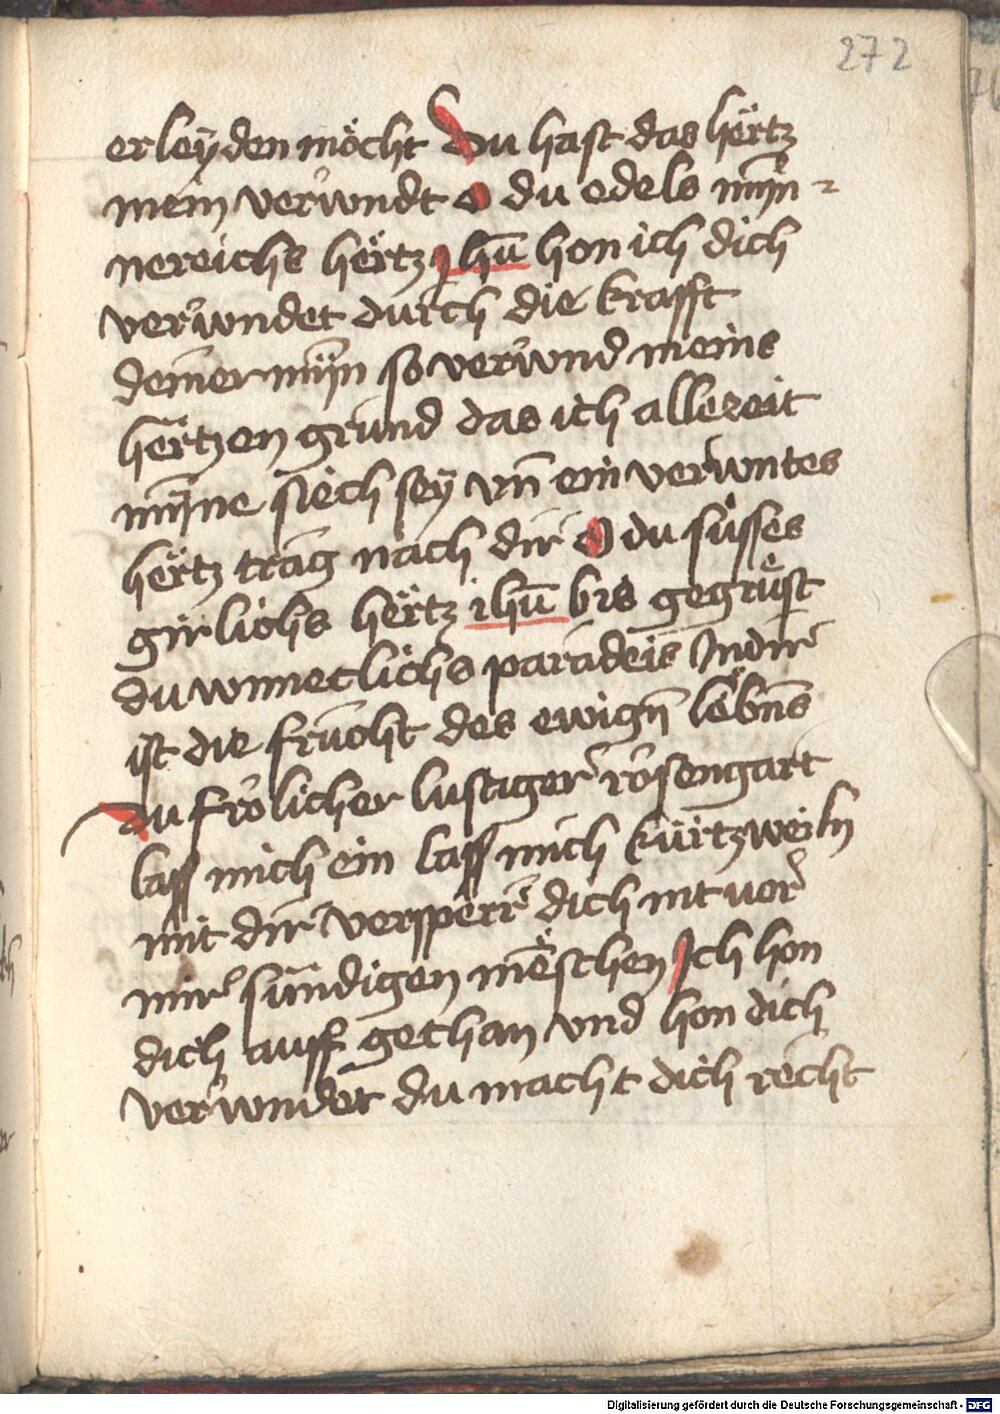 272
erleÿden möcht Du hast das hertz
mein verwndt O du edels mÿn-
nereichs hertz ihū hon ich dich
verwndet durch die krafft
deiner mÿn so verwnd meins
hertzen grund das ich allezeit
mÿne siech seÿ vn̄ ein verwntes
hertz trag nach dir O du süsses
girlichs hertz ihū bis gegrüst
du wnneclichs paradeis In dir
ist die frucht des ewign̄ lebn̄s
du frölicher lustiger rosengart
lass mich ein lass mich kürtzweiln
mit dir versperr dich nit vor
mir sündigen mēschen Ich hon
dich auff gethan vnd hon dich
verwndet du macht dich recht
Digitalisierung gefördert durch die Deutsche Forschungsgemeinschaft - DFG